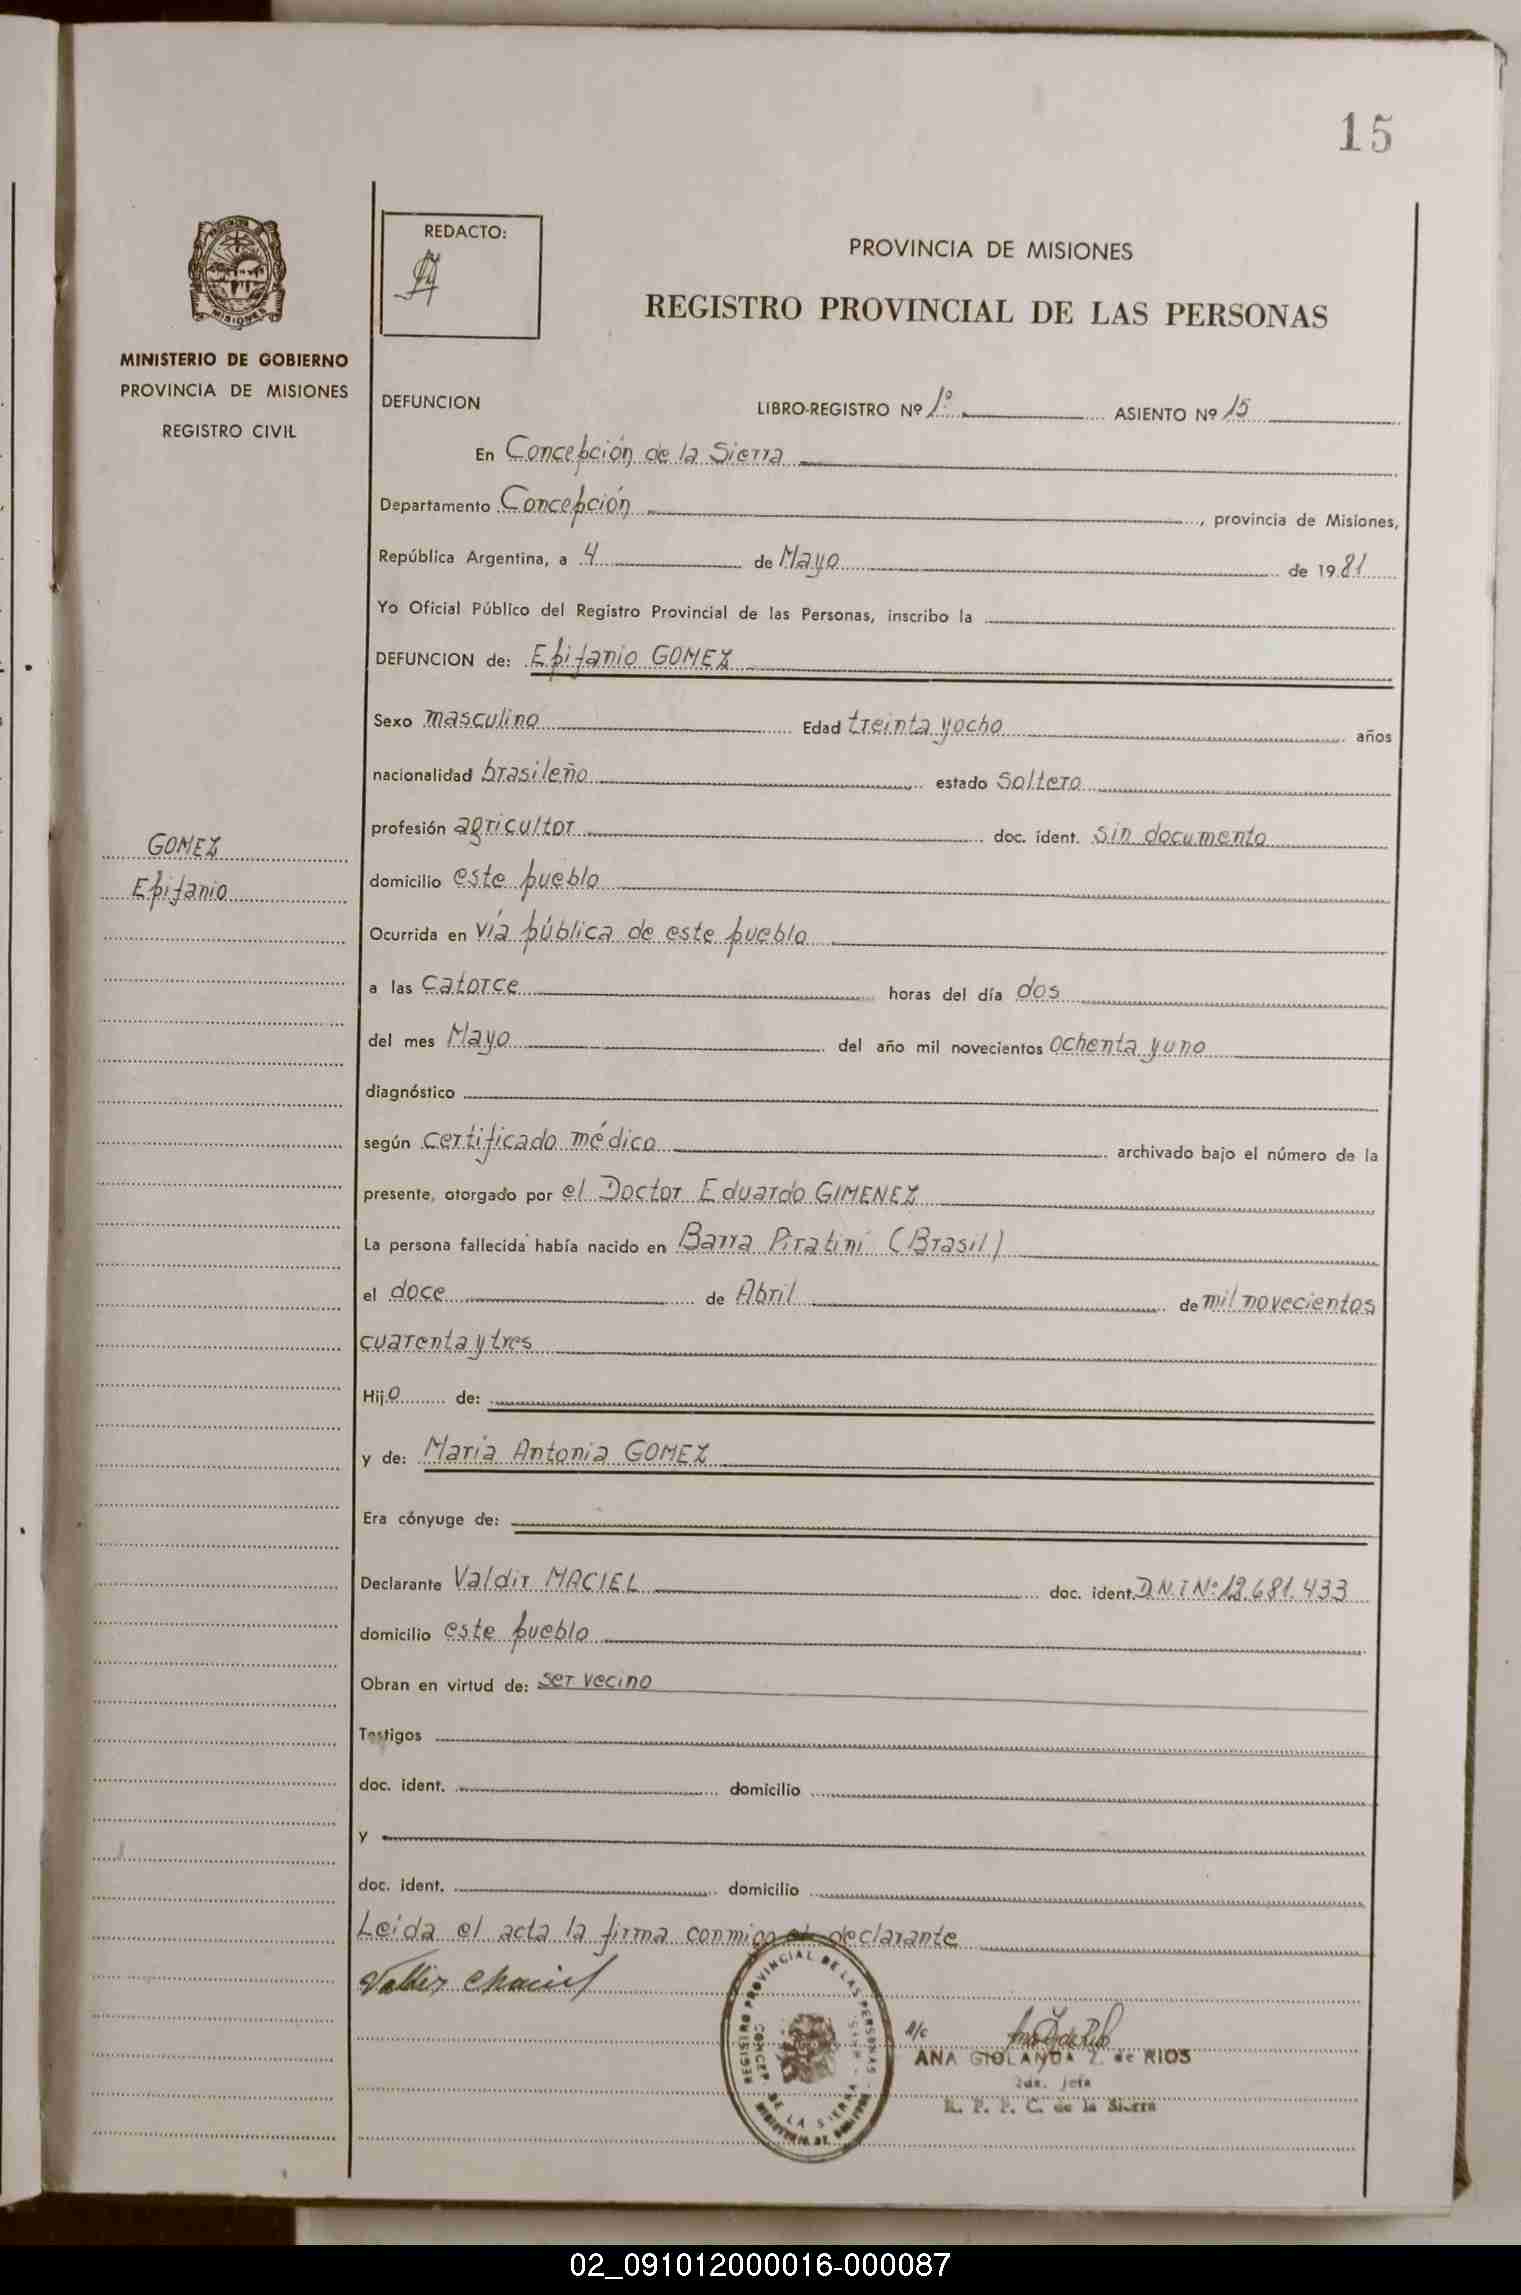 15
REDACTO:
PROVINCIA DE MISIONES
REGISTRO PROVINCIAL DE LAS PERSONAS
MISIONES
MINISTERIO DE GOBIERNO
PROVINCIA DE MISIONES
REGISTRO CIVIL
DEFUNCION LIBRO-REGISTRO Nº 1º ASIENTO Nº 15
En Concepción de la Sierra
Departamento Concepción, provincia de Misiones,
República Argentina, a 4 de Mayo de 1981
Yo Oficial Público del Registro Provincial de las Personas, inscribo la
DEFUNCION de: Epifanio GOMEZ
Sexo masculino Edad treinta y ocho años
nacionalidad brasileño estado soltero
profesión agricultor doc. ident. sin documento
GOMEZ
Epifanio
domicilio este pueblo
Ocurrida en vía pública de este pueblo
a las catorce horas del día dos
del mes Mayo del año mil novecientos ochenta y uno
diagnóstico
según certificado médico archivado bajo el número de la
presente, otorgado por el Doctor Eduardo GIMENEZ
La persona fallecida había nacido en Barra Piratiní (Brasil)
el doce de Abril de mil novecientos
cuarenta y tres
Hijo de:
y de: María Antonia GOMEZ
Era cónyuge de:
Declarante Valdir MACIEL doc. ident. D.N.I Nº 12.681.433
domicilio este pueblo
Obran en virtud de: ser vecino
Testigos
doc. ident. domicilio
y
doc. ident. domicilio
Leída el acta la firma conmigo el declarante
Valdir Maciel
REGISTRO PROVINCIAL DE LAS PERSONAS
CONCEP. DE LA SIERRA
A/c
ANA GIOLANDA Z. de RIOS
2da. Jefa
R. P. P. C. de la Sierra
02_091012000016-000087